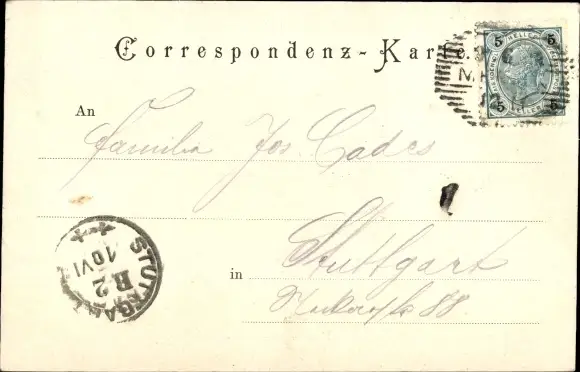 Correspondenz-Karte.
5 HELLER 5
5 5
An
Familie Jos. Cades
in Stuttgart
88
STUTTGART
10 VI
B 2